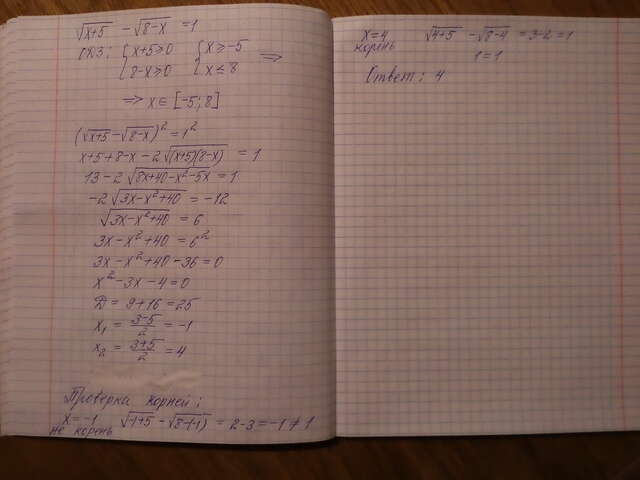 √(x+5) - √(8-x) = 1
ОДЗ: { x+5≥0 { x≥-5 ⟹
8-x≥0 x≤8
⟹ x∈[-5;8]
(√(x+5) - √(8-x))² = 1²
x+5+8-x-2√((x+5)(8-x)) = 1
13-2√(8x+40-x²-5x) = 1
-2√(3x-x²+40) = -12
√(3x-x²+40) = 6
3x-x²+40 = 6²
3x-x²+40-36=0
x²-3x-4=0
D = 9+16=25
x₁ = (3-5)/2 = -1
x₂ = (3+5)/2 = 4
Проверка корней:
x=-1 √(-1+5) - √(8-(-1)) = 2-3=-1≠1
не корень
x=4 √(4+5) - √(8-4) = 3-2=1
корень
1=1
Ответ: 4